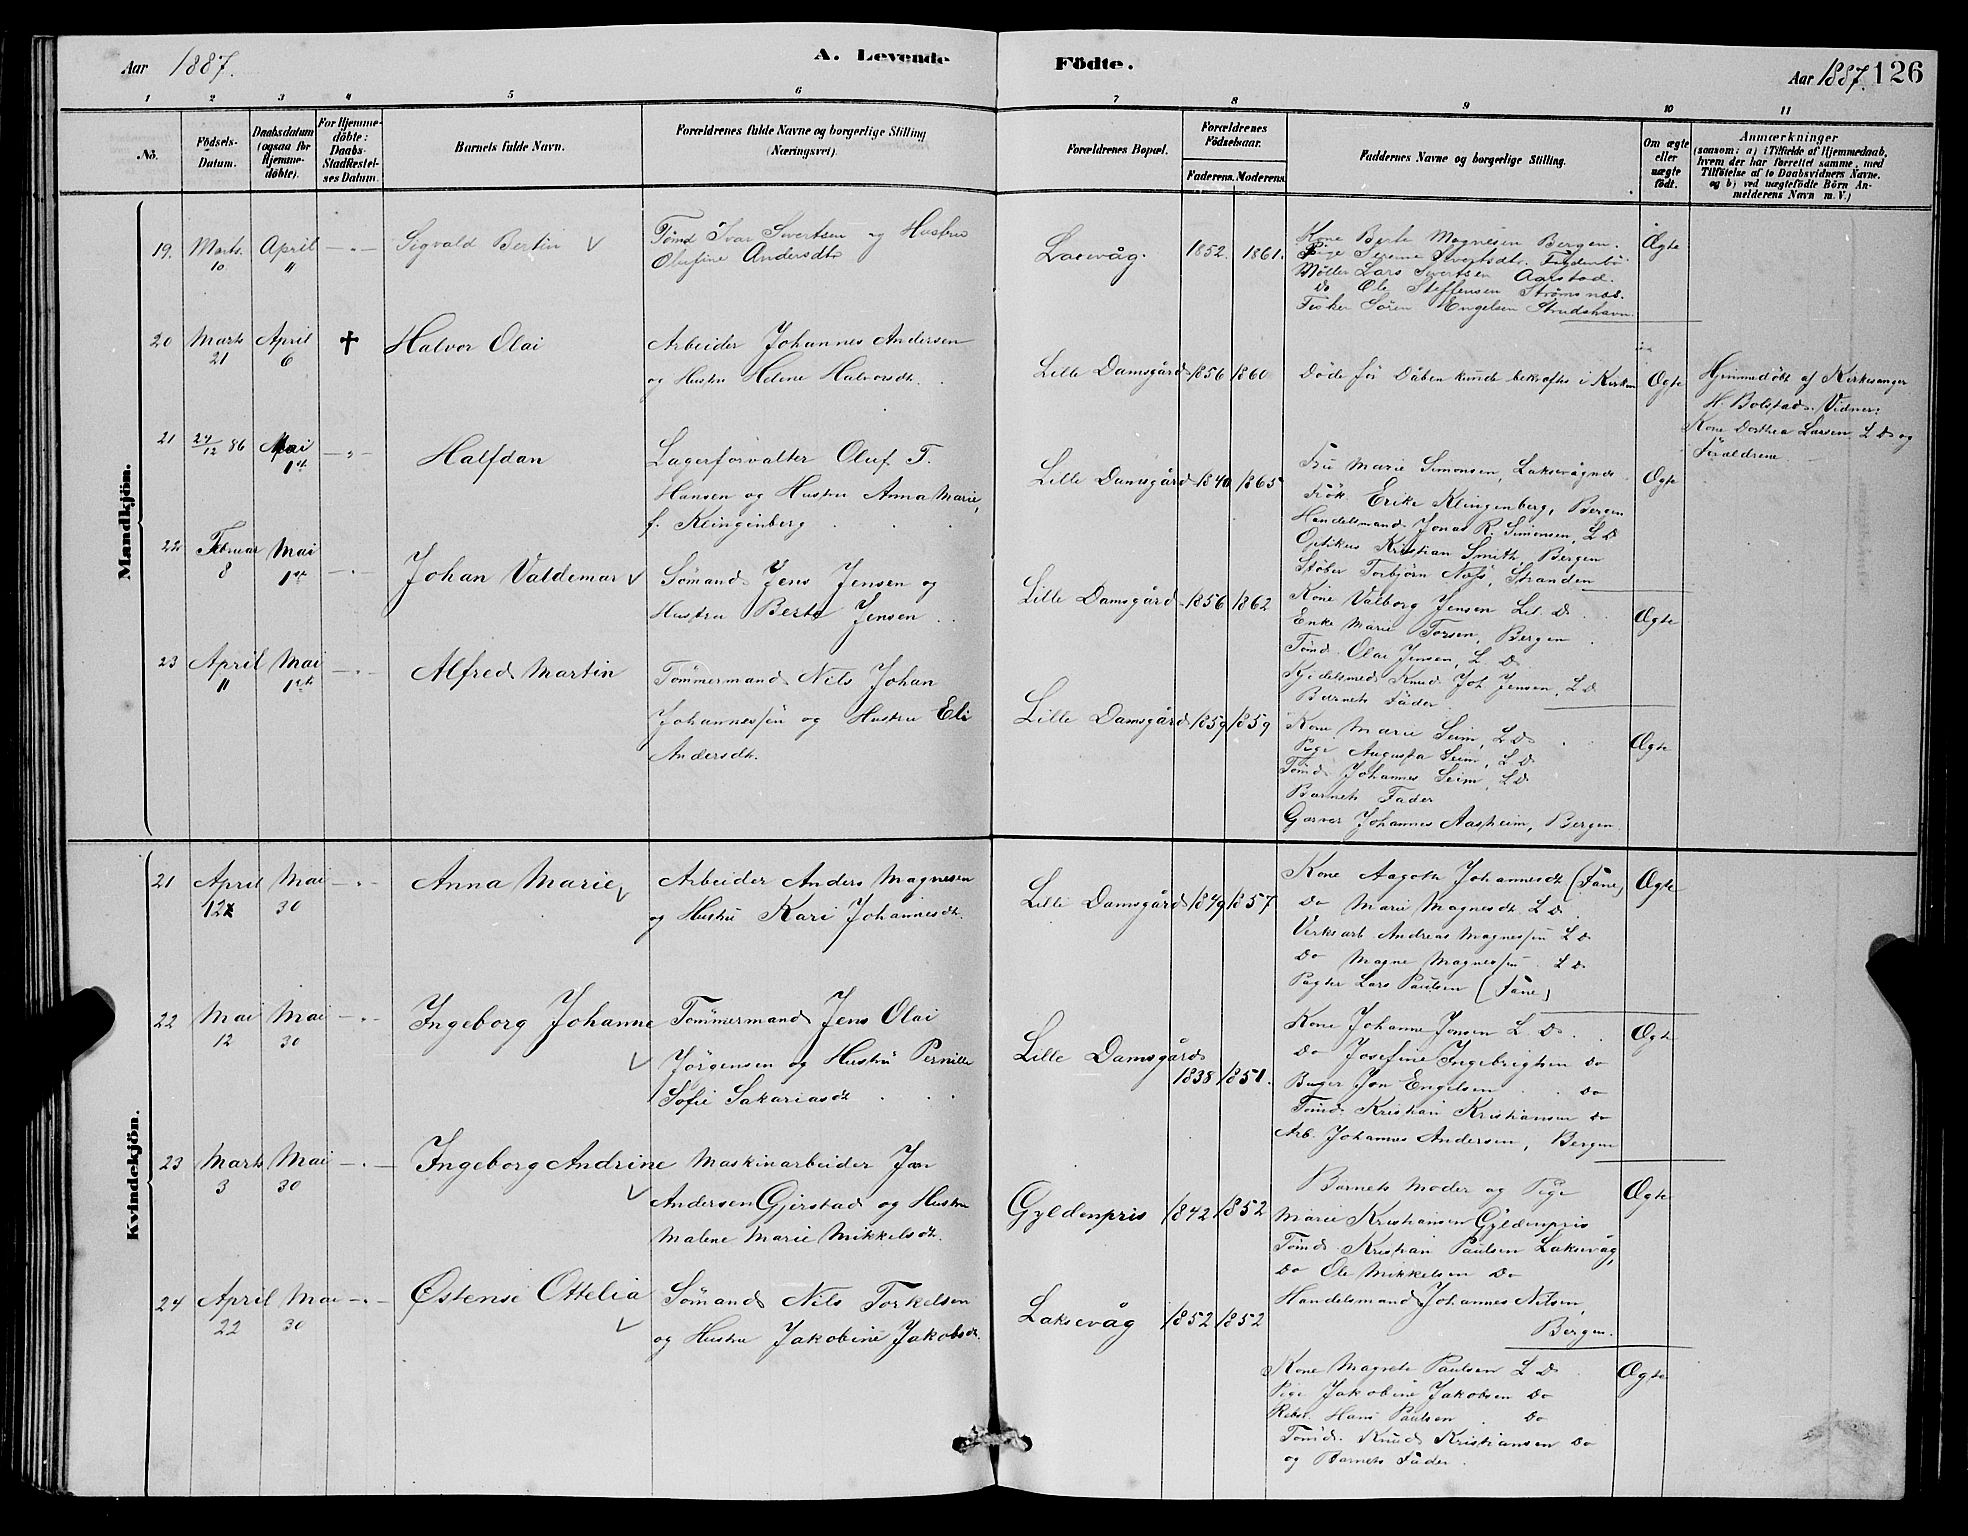 Aar 1887.
A. Levende
Födte.
Aar 1887. 126
1 2 3 4 5 6 7 8 9 10 11
No.
Födsels-Datum.
Daabsdatum (ogsaa for Hjemme-döbte).
For Hjemme-döbte: Daabs-Stadfæstel-ses Datum.
Barnets fulde Navn.
Forældrenes fulde Navne og borgerlige Stilling
(Næringsvei).
Forældrenes Bopæl.
Forældrenes Födselsaar.
Faderens. Moderens.
Faddernes Navne og borgerlige Stilling.
Om ægte eller uægte födt.
Anmærkninger
(saasom: a) i Tilfælde af Hjemmedaab, hvem der har forrettet samme, med Tilföielse af to Daabsvidners Navne, og b) ved uægtefödte Börn An-melderens Navn m. V.)
Mandkjön.
19. Marts 10 April 11 - " - Sigvald Bertin v
Tømd Ivar Sivertsen og Hustru
Olufine Andersdtr
Laxevåg. 1852. 1861.
Kone Berte Magnesen Bergen.
Pige Serine Sivertsdtr.
Møller Lars Sivertsen Aarstad.
Do Ole Steffensen Strømsnes.
Fisker Sören Engelsen Strudshavn.
Ægte
20 Marts 21 April 6 ✝ Halvor Olai
Arbeider Johannes Andersen
og Hustru Helene Halvorsdtr.
Lille Damsgård 1856 1860
Döde för Dåben kunde bekræftes i Kirken
Ægte
Hjemmedöbt af Kirkesanger
H. Bolstad. Vidner:
Kone Dorthea Larsen L D og
Forældrene
21 24/12 86 Mai 1st - " - Halfdan
Lagerforvalter Oluf T.
Hansen og Hustru Anna Marie,
f. Klingenberg
Lille Damsgård 1840 1865
Fru Marie Simonsen, Laksevågnes
Frök. Erike Klingenberg, Bergen
Handelsmand Jonas R. Simonsen, L D
Optikus Kristian Smith, Bergen
Stöber Torbjörn Næss, Stranden
Ægte
22 Februar 8 Mai 1st - " - Johan Valdemar v
Sömand Jens Jensen og
Hustru Berte Jensen
Lille Damsgård 1856 1862
Kone Valborg Jensen Lil. D.
Enke Marie Torsen, Bergen
Tömd. Olai Jensen, L. D.
Kjedelsmed Knud Joh Jensen, L D
Barnets Fader.
Ægte
23 April 11 Mai 1st - " - Alfred Martin
Tömmermand Nils Johan
Johannessen og Hustru Eli
Andersdtr.
Lille Damsgård 1859 1859
Kone Marie Seim, L D
Pige Augusta Seim, L D
Tömd. Johannes Seim, L D
Barnets Fader
Garver Johannes Aasheim, Bergen
Ægte
Kvindekjön.
21 April 12 Mai 30 - " - Anna Marie v
Arbeider Anders Magnesen
og Hustru Kari Johannesdtr.
Lille Damsgård 1849 1857
Kone Aagoth Johannesdtr (Fane)
Do Marie Magnesdtr. L D
Verksarb. Andreas Magnessen L D
Do Magne Magnessen L D
Pagter Lars Paulsen (Fane)
Ægte
22 Mai 12 Mai 30 - " - Ingeborg Johanne v
Tömmermand Jens Olai
Jörgensen og Hustru Pernille
Sofie Sakariasdtr
Lille Damsgård 1838 1851.
Kone Johanne Jonsen L. D.
Do Josefine Ingebrigtsen Do
Bager Jon Engelsen Do
Tömd. Kristian Kristiansen Do
Arb. Johannes Andersen, Bergen
Ægte
23 Marts 3 Mai 30 - " - Ingeborg Andrine v
Maskinarbeider Jan
Andersen Gjerstad og Hustru
Malene Marie Mikkelsdtr.
Gyldenpris 1842 1852
Barnets Moder og Pige
Marie Kristiansen Gyldenpris
Tömd. Kristian Paulsen Laksevåg,
Do Ole Mikkelsen Do
Handelsmand Johannes Nilsen,
Bergen.
Ægte
24 April 22 Mai 30 - " - Østense Ottelia v
Sömand Nils Torkelsen
og Hustru Jakobine Jakobsdtr.
Laksevåg 1852 1852
Kone Magrete Paulsen L D
Pige Jakobine Jakobsen Do
Hans Paulsen Do
Tömd. Knud Kristiansen Do
og Barnets Fader.
Ægte